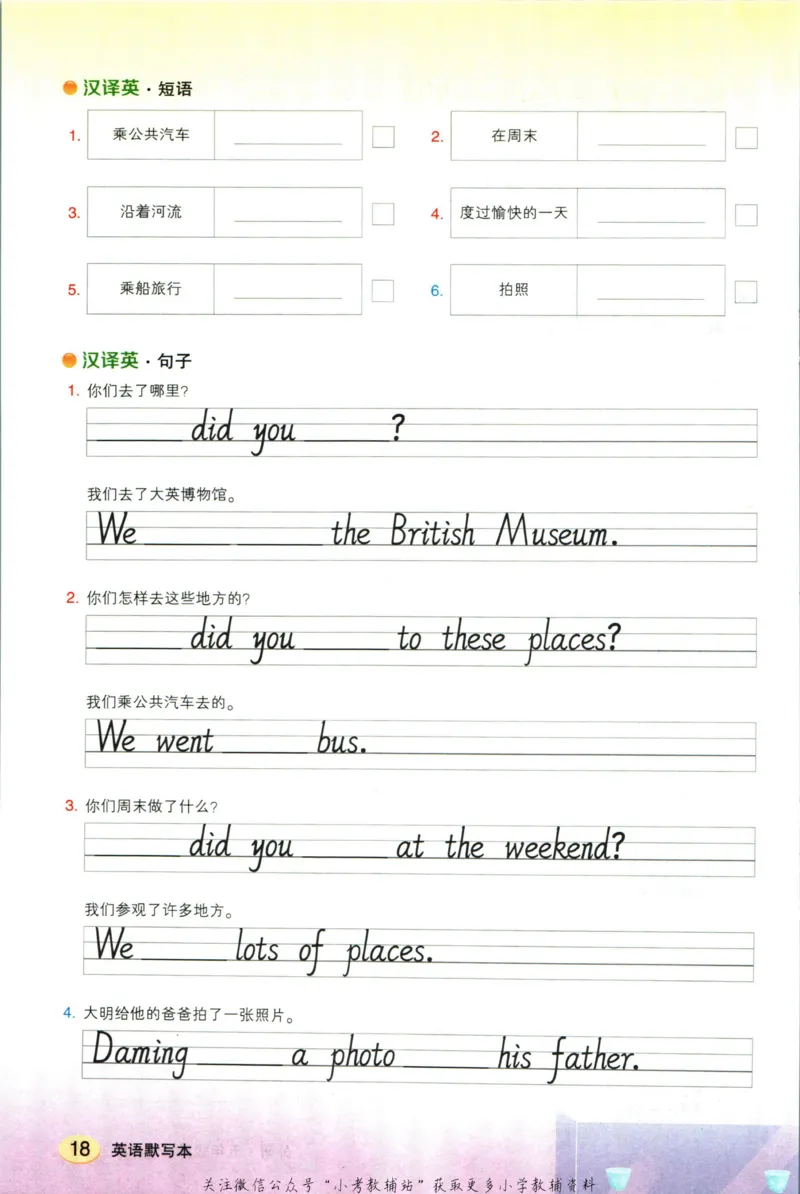 汉译英·短语
1. 乘公共汽车 ________ 2. 在周末 ________
3. 沿着河流 ________ 4. 度过愉快的一天 ________
5. 乘船旅行 ________ 6. 拍照 ________
汉译英·句子
1. 你们去了哪里?
______ did you ______?
我们去了大英博物馆。
We ______ ______ the British Museum.
2. 你们怎样去这些地方的?
______ did you ______ to these places?
我们乘公共汽车去的。
We went ______ bus.
3. 你们周末做了什么?
______ did you ______ at the weekend?
我们参观了许多地方。
We ______ lots of places.
4. 大明给他的爸爸拍了一张照片。
Daming ______ a photo ______ his father.
18 英语默写本
关注微信公众号“小考教辅站”获取更多小学教辅资料